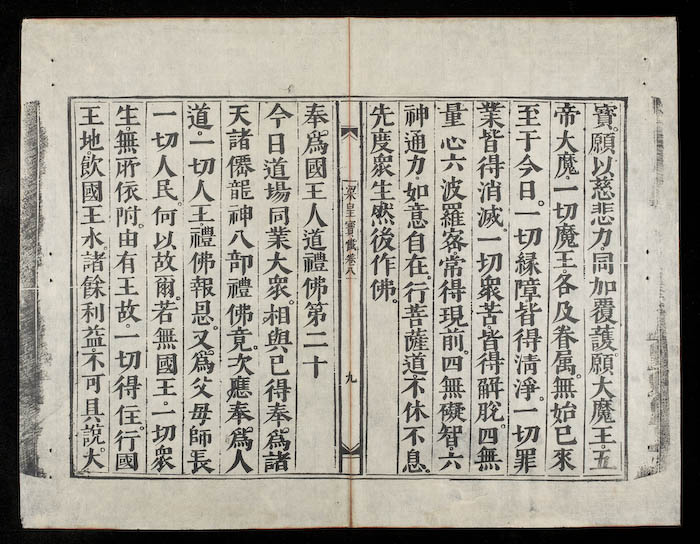 寶。願以慈悲力。同加覆護。願大魔王。五
帝大魔。一切魔王。各及眷属。無始已來
至于今日。一切緣障皆得清淨。一切罪
業皆得消滅。一切衆苦皆得解脫。四無
量心六波羅宻常得現前。四無礙智。六
神通力。如意自在。行菩薩道。不休不息。
先度衆生。然後作佛。
梁皇寶懺卷八
九
奉為國王人道禮佛第二十
今日道場同業大衆。相與已得奉為諸
天諸僊龍神八部禮佛竟。次應奉為人
道。一切人王。禮佛報恩。又為父毋師長
一切人民。何以故爾。若無國王。一切衆
生。無所依附。由有王故。一切得住。行國
王地。飲國王水。諸餘利益。不可具說。大